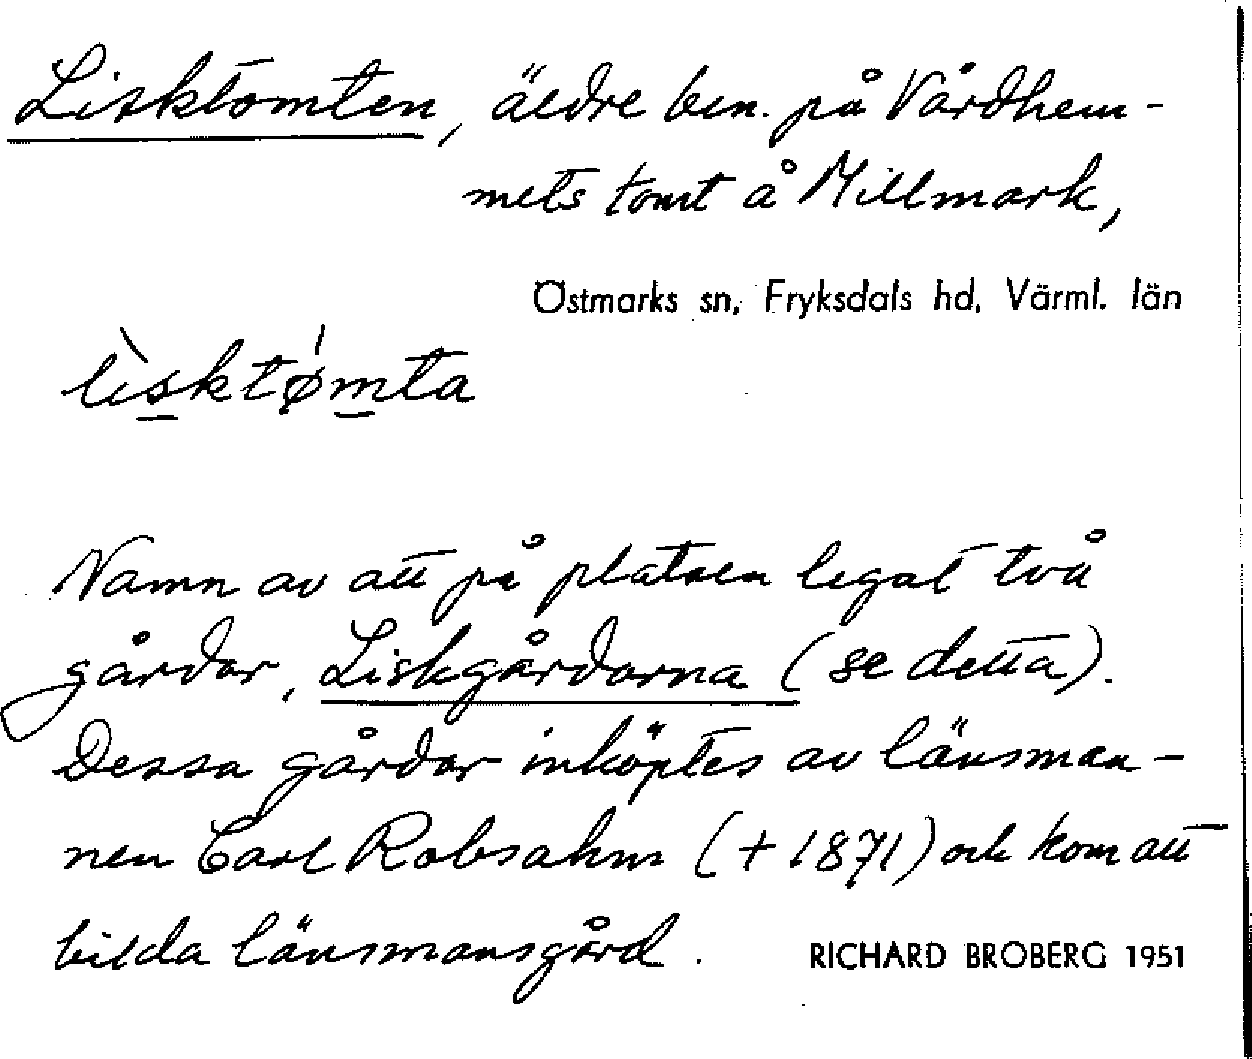 Lisktomten, äldre ben. på Vårdhem-
mets tomt å Millmark,
Östmarks sn, Fryksdals hd, Värml. län
lìsktǿmta
Namn av att på platsen legat två
gårdar, Liskgårdarna (se detta).
Dessa gårdar inköptes av länsman-
nen Carl Robsahm (+ 1871) och kom att
bilda länsmansgård.
RICHARD BROBERG 1951